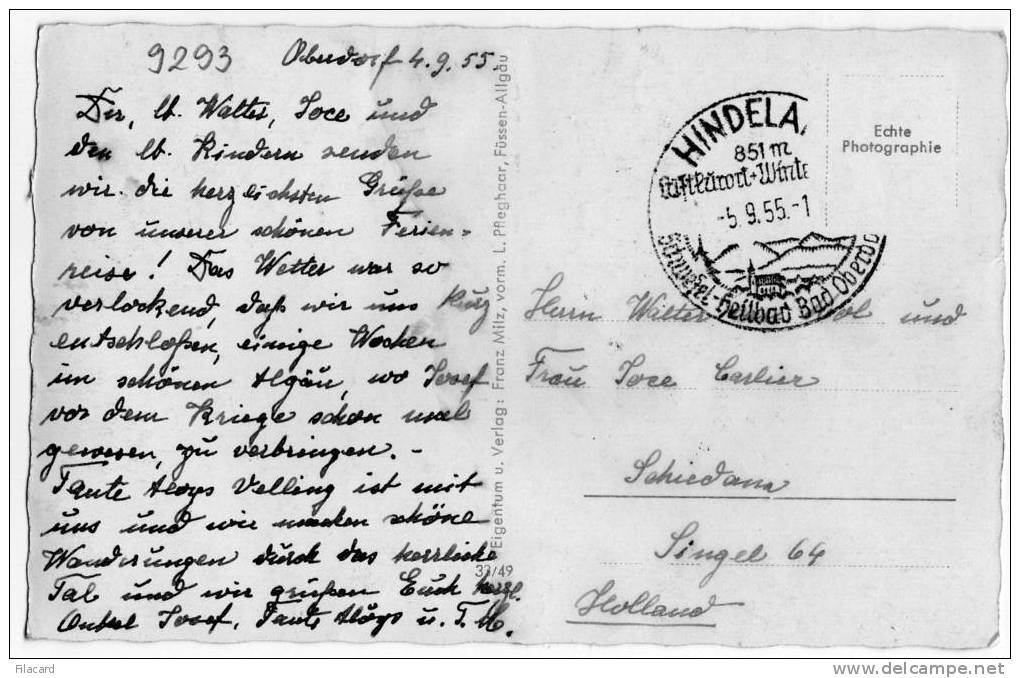 9293 Oberdorf 4.9.55.
Dir, lb. Walter, Joce und
den lb. Kindern senden
wir die herzlichsten Grüße
von unserer schönen Ferien=
reise! Das Wetter war so
verlockend, daß wir uns kurz
entschloßen, einige Wochen
im schönen Algäu, wo Josef
vor dem Kriege schon mal
gewesen, zu verbringen. -
Tante Aloys Velling ist mit
uns und wir machen schöne
Wanderungen durch das herrliche
Tal und wir grüßen Euch herzl.
Onkel Josef, Tante Aloys u. T. M.
Eigentum u. Verlag: Franz Milz, vorm. L. Pfleghaar, Füssen-Allgäu
33/49
HINDELA
851 m
Luftkurort+Winte
-5.9.55.-1
Schwefel-Heilbad Bad Oberd
Echte
Photographie
Herrn Walter und
Frau Joce Carlier
Schiedam
Singel 64
Holland
Filacard
www.delcampe.net